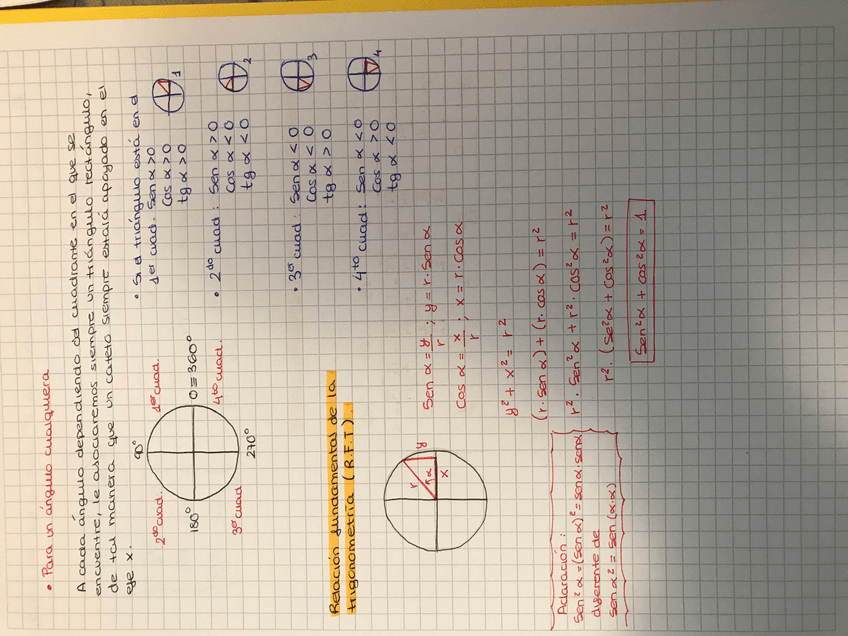 • Para un ángulo cualquiera
A cada ángulo dependiendo del cuadrante en el que se
encuentre, le asociaremos siempre un triángulo rectángulo,
de tal manera que un cateto siempre estará apoyado en el
eje x.
90°
2do cuad.
1er cuad.
180°
0=360°
3er cuad
4to cuad.
270°
• Si el triángulo está en el
1er cuad. Sen α>0
Cos α>0
tg α>0
1
• 2do cuad: Sen α>0
Cos α<0
tg α<0
2
• 3er cuad: Sen α<0
Cos α<0
tg α>0
3
• 4to cuad: Sen α<0
Cos α>0
tg α<0
4
Relación fundamental de la
trigonometría (R.F.T).
r
y
α
x
Sen α = y/r ; y = r·Sen α
Cos α = x/r ; x = r·Cos α
y² + x² = r²
(r·Sen α) + (r·cos α) = r²
r²·Sen²α + r²·Cos²α = r²
r²·(Se²α + Cos²α) = r²
Sen²α + cos²α = 1
Aclaración:
Sen²α = (Sen α)² = senα·senα
diferente de
Sen α² = Sen (α·α)